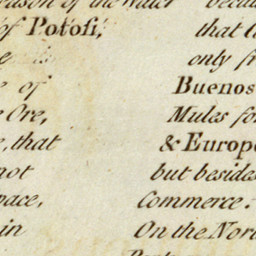 of the Water
of Potosi,
e
of
Ore,
e, that
not
pace,
in
that
only fr
Buenos
Mules for
& Europe
but besides
Commerce.
On the Nor